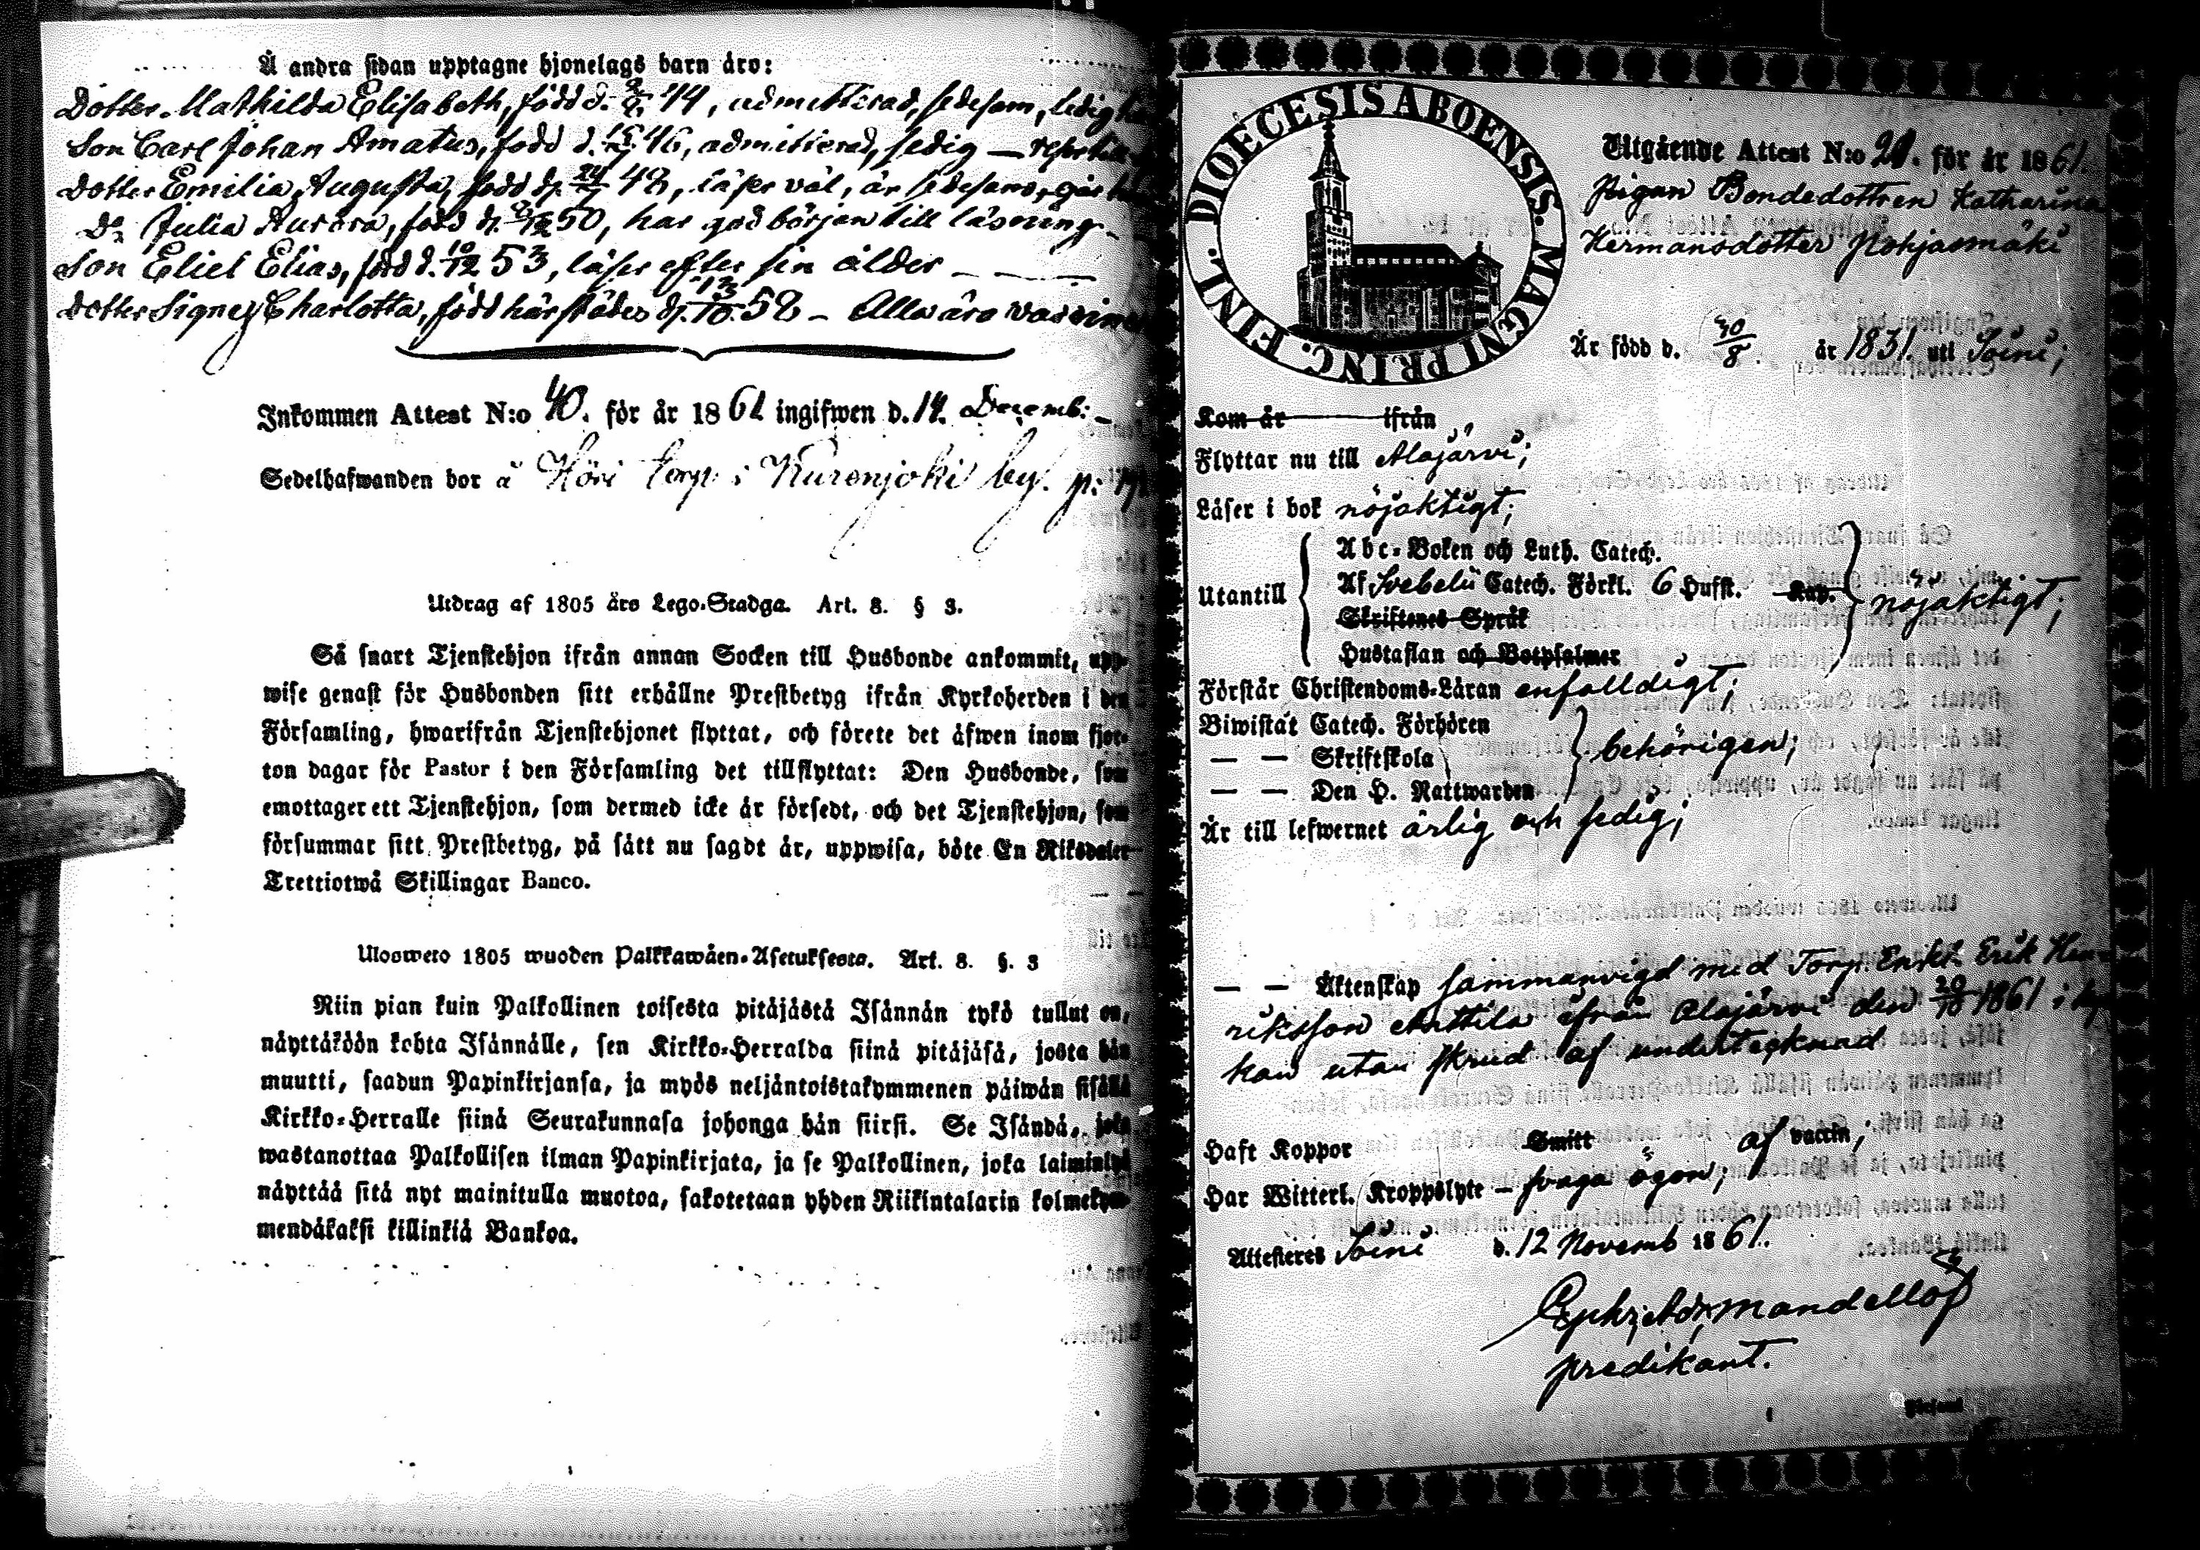 Å andra sidan upptagne hjonelags barn äro:
Dotter Mathilda Elisabeth, född d. 44, admitterad, sedesam, ledig
Son Carl Johan Amatus, född d. 46, admitterad, ledig —
Dotter Emilia Augusta, född d. 48, läser väl, är sedesam,
Dr Julia Aurora, född d. 50, har god början till läsning
Son Eliel Elias, född d. 10/12 53, läser efter sin ålder — — —
Dotter Signe Charlotta, född härstädes d. 58 — Alla äro
Inkommen Attest N:o 40. för år 1861 ingifwen d. 14. Decemb: —
Sedelhafwanden bor å torp i Kurenjoki by.
Utdrag af 1805 års Lego-Stadga. Art. 8. § 3.
Så snart Tjenstehjon ifrån annan Socken till Husbonde ankommit, upp-
wise genast för Husbonden sitt erhållne Prestbetyg ifrån Kyrkoherden i den
Församling, hwarifrån Tjenstehjonet flyttat, och förete det äfwen inom fjor-
ton dagar för Pastor i den Församling det tillflyttat: Den Husbonde, som
emottager ett Tjenstehjon, som dermed icke är försedt, och det Tjenstehjon, som
försummar sitt Prestbetyg, på sätt nu sagdt är, uppwisa, böte En Riksdaler
Trettiotwå Skillingar Banco.
Ulosweto 1805 wuoden Palkkawäen-Asetuksesta. Art. 8. §. 3
Niin pian kuin Palkollinen toisesta pitäjästä Isännän tykö tullut on,
näyttäköön kohta Isännälle, sen Kirkko-Herralda siinä pitäjäsä, josta hän
muutti, saadun Papinkirjansa, ja myös neljäntoistakymmenen päiwän sisällä
Kirkko-Herralle siinä Seurakunnasa johonga hän siirsi. Se Isändä, joka
wastanottaa Palkollisen ilman Papinkirjata, ja se Palkollinen, joka laiminlyö
näyttää sitä nyt mainitulla muotoa, sakotetaan yhden Riikintalarin kolmekym-
mendäkaksi killinkiä Bankoa.
DIOECESIS ABOENSIS. MAGNI PRINC. FINL.
Utgående Attest N:o 20. för år 1861.
Pigan Bondedottren Katharina
Hermansdotter Pohjasmäki
Är född d. 30/8. år 1831. uti Soini;
Kom år ifrån
Flyttar nu till Alajärvi;
Läser i bok nöjaktigt;
Utantill
Abc-Boken och Luth. Catech.
Af Svebelii Catech. Förkl. 6 Hufst. Kap.
Skriftenes Språk
Hustaflan och Botpsalmer
nöjaktigt;
Förstår Christendoms-Läran enfalldigt;
Biwistat Catech. Förhören
— — Skriftskola
— — Den H. Nattwarden
behörigen;
Är till lefwernet ärlig och sedig;
— — Äktenskap sammanvigd med Torp. Enkl. Erik Hen-
riksson Anttila ifrån Alajärvi den 20/10 1861 i kyr
kan utan skrud af undertecknad
Haft Koppor Smitt af vaccin;
Har Witterl. Kroppslyte — svaga ögon;
Attesteras Soini d. 12 Novemb 1861.
Mandellöf
predikant.